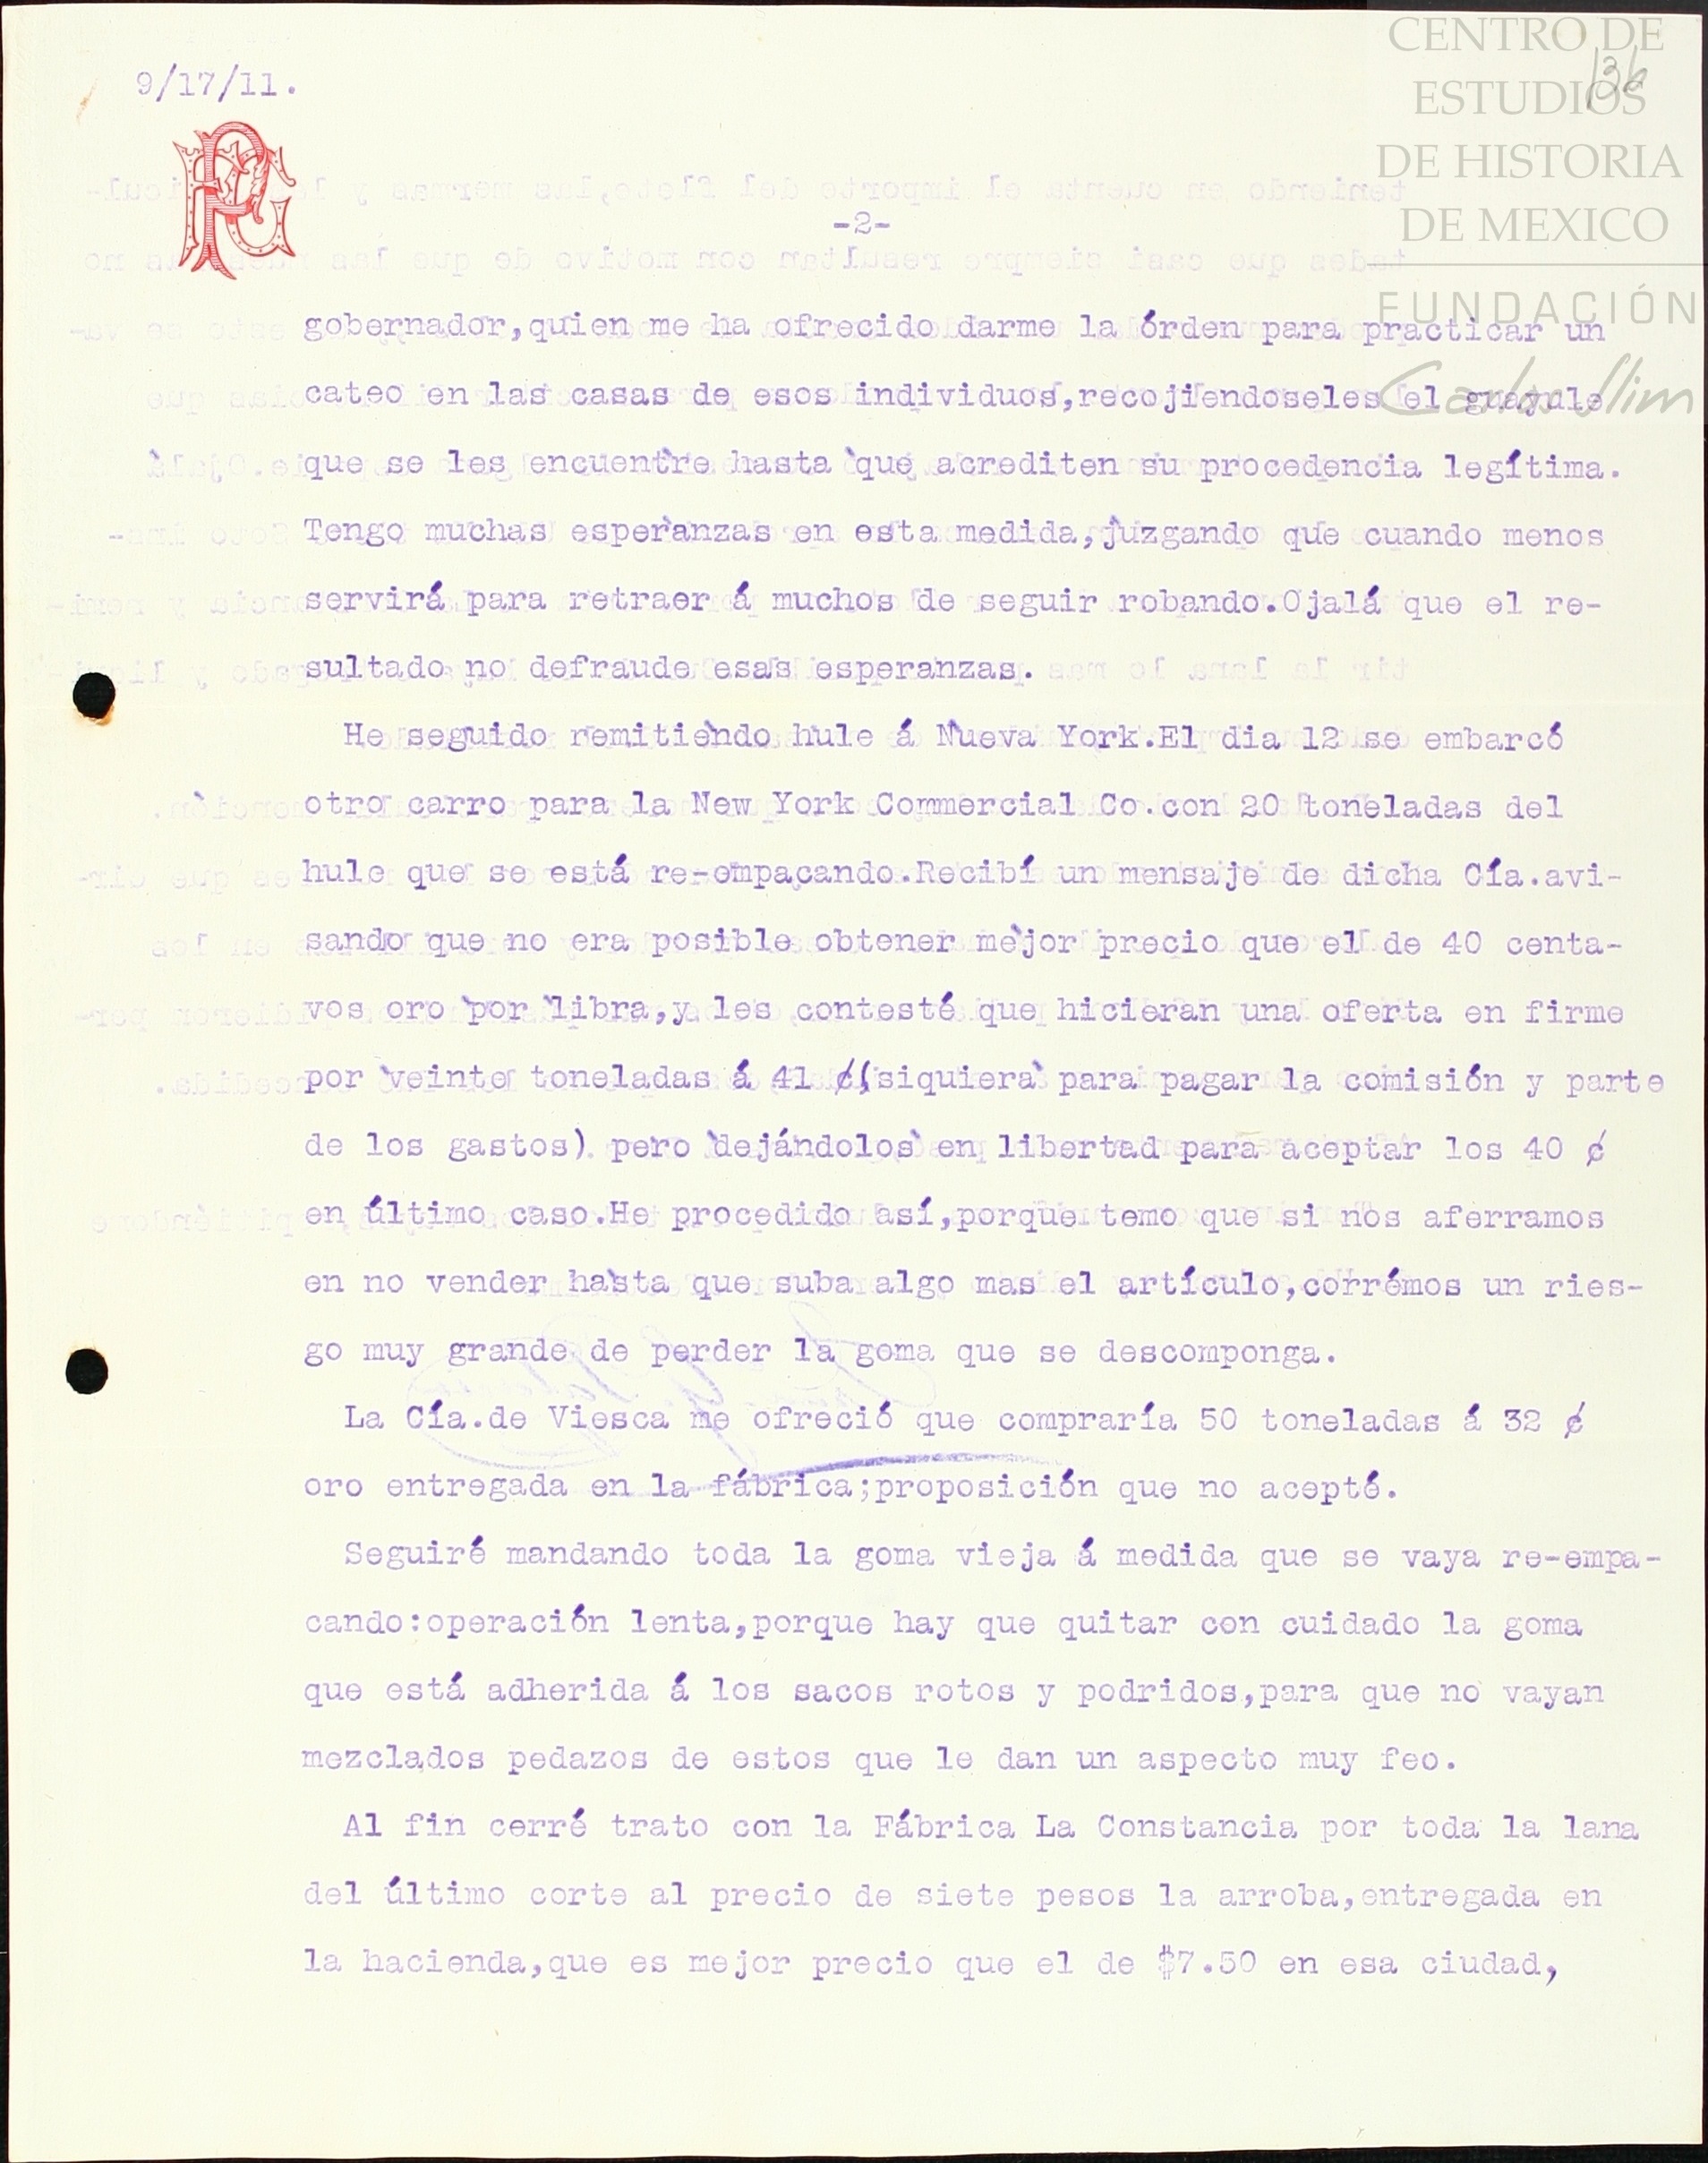 CENTRO DE
ESTUDIOS
DE HISTORIA
DE MEXICO
FUNDACIÓN
Carlos Slim
136
9/17/11.
-2-
gobernador,quien me ha ofrecido darme la órden para practicar un
cateo en las casas de esos individuos,recojiendoseles el guayule
que se les encuentre hasta que acrediten su procedencia legítima.
Tengo muchas esperanzas en esta medida,juzgando que cuando menos
servirá para retraer á muchos de seguir robando.Ojalá que el re-
sultado no defraude esas esperanzas.
He seguido remitiendo hule á Nueva York.El dia 12 se embarcó
otro carro para la New York Commercial Co.con 20 toneladas del
hule que se está re-empacando.Recibí un mensaje de dicha Cía.avi-
sando que no era posible obtener mejor precio que el de 40 centa-
vos oro por libra,y les contesté que hicieran una oferta en firme
por veinte toneladas á 41 ¢(siquiera para pagar la comisión y parte
de los gastos) pero dejándolos en libertad para aceptar los 40 ¢
en último caso.He procedido así,porque temo que si nos aferramos
en no vender hasta que suba algo mas el artículo,corrémos un ries-
go muy grande de perder la goma que se descomponga.
La Cía.de Viesca me ofreció que compraría 50 toneladas á 32 ¢
oro entregada en la fábrica;proposición que no acepté.
Seguiré mandando toda la goma vieja á medida que se vaya re-empa-
cando:operación lenta,porque hay que quitar con cuidado la goma
que está adherida á los sacos rotos y podridos,para que no vayan
mezclados pedazos de estos que le dan un aspecto muy feo.
Al fin cerré trato con la Fábrica La Constancia por toda la lana
del último corte al precio de siete pesos la arroba,entregada en
la hacienda,que es mejor precio que el de $7.50 en esa ciudad,